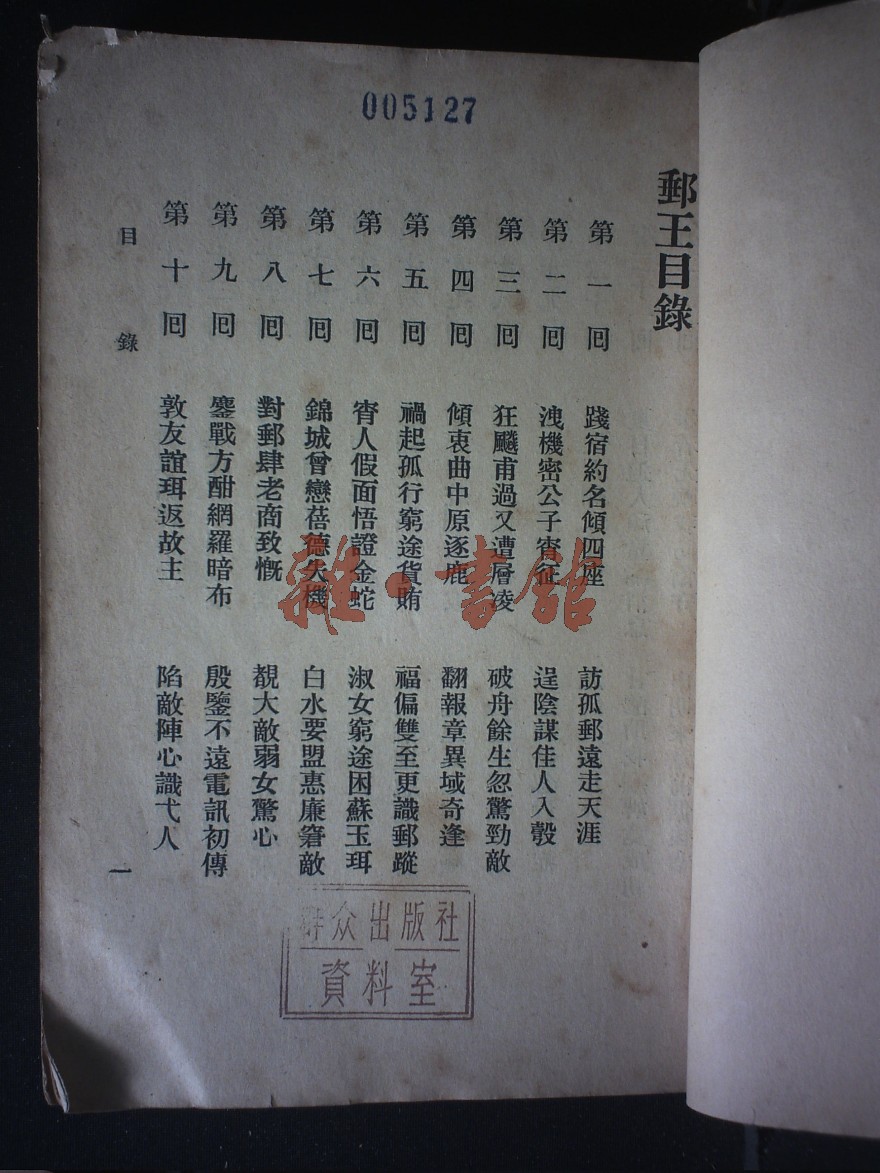 005127
郵王目錄
第一囘 踐宿約名傾四座 訪孤郵遠走天涯
第二囘 洩機密公子賫征 逞陰謀佳人入彀
第三囘 狂飈甫過又遭層凌 破舟餘生忽驚勁敵
第四囘 傾衷曲中原逐鹿 翻報章異域奇逢
第五囘 禍起孤行窮途貨賄 福偏雙至更識郵蹤
第六囘 宵人假面悟證金蛇 淑女窮途困蘇玉珥
第七囘 錦城曾戀蓓德失機 白水要盟惠廉窘敵
第八囘 對郵肆老商致慨 覩大敵弱女驚心
第九囘 鏖戰方酣網羅暗布 殷鑒不遠電訊初傳
第十囘 敦友誼珥返故主 陷敵陣心識弋人
目錄
一
雜·書館
群众出版社
資料室